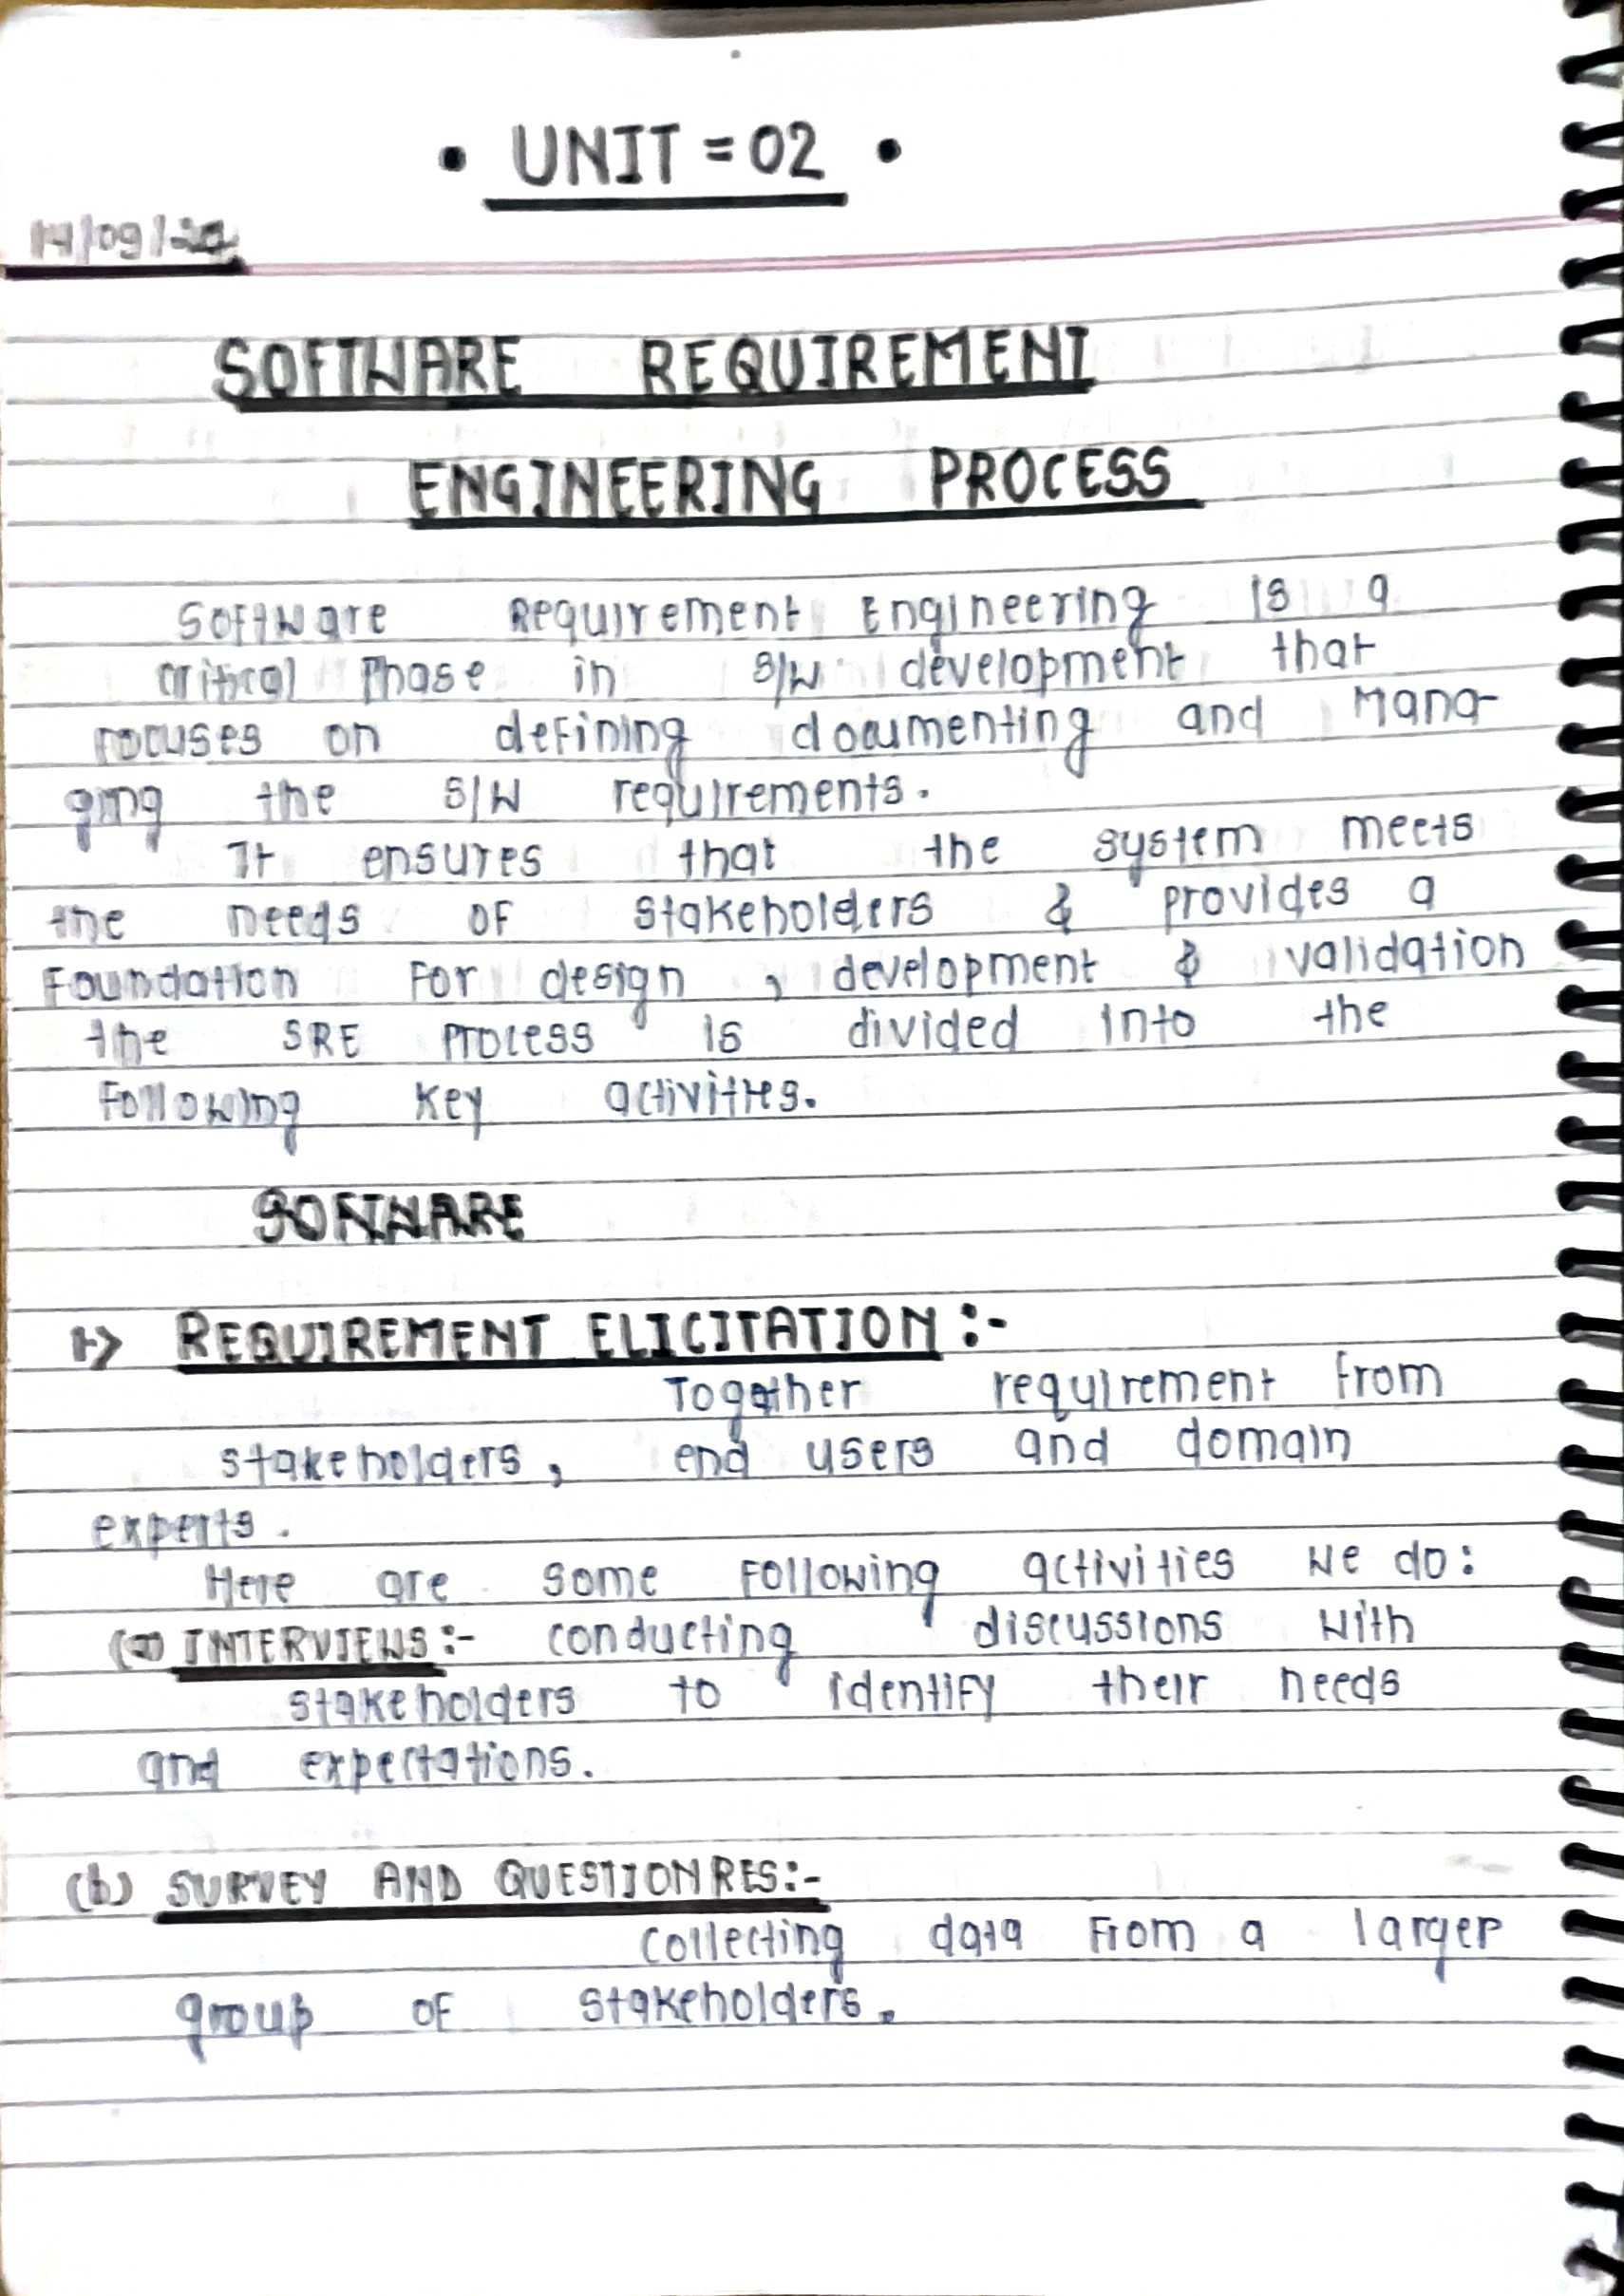 • UNIT = 02 •
SOFTWARE REQUIREMENT
ENGINEERING PROCESS
Software Requirement Engineering is a
critical Phase in S/W development that
Focuses on defining documenting and Mana-
ging the S/W requirements.
It ensures that the system meets
the needs OF stakeholders & provides a
Foundation For design , development & validation
the SRE Process is divided into the
Following Key activities.
SOFTWARE
1> REQUIREMENT ELICITATION :-
Together requirement From
stakeholders, end users and domain
experts.
Here are some Following activities we do:
(a) INTERVIEWS:- conducting discussions with
stakeholders to identify their needs
and expectations.
(b) SURVEY AND QUESTIONRES:-
collecting data From a larger
group OF stakeholders.